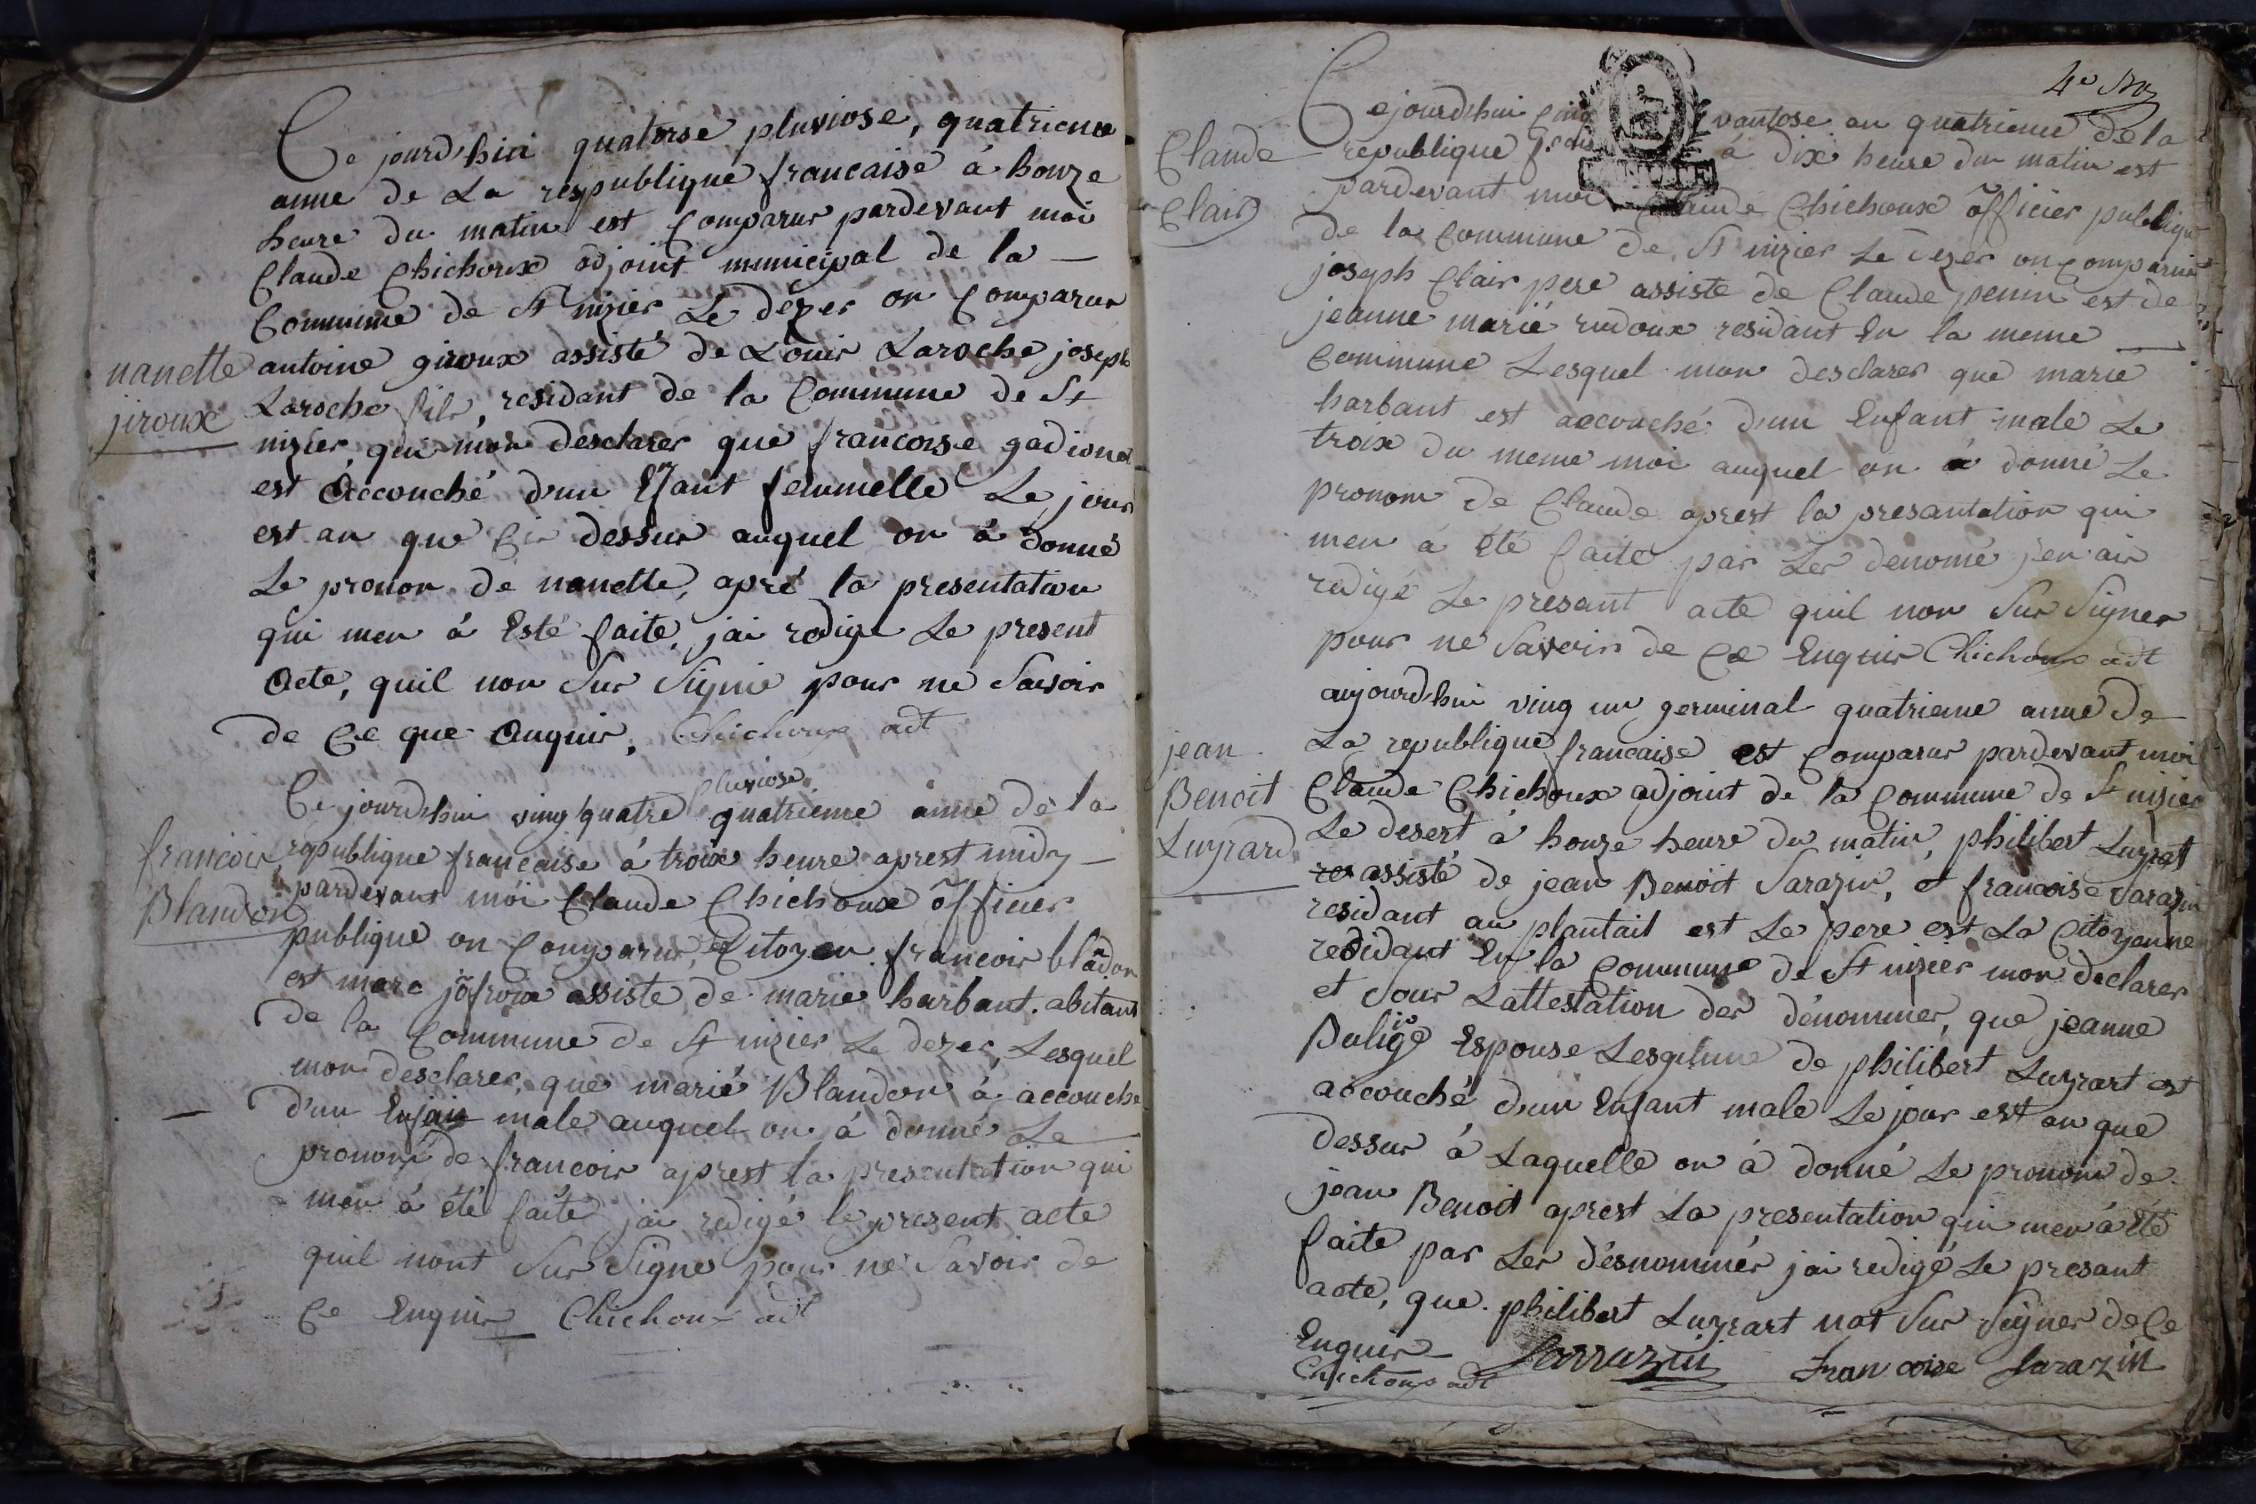 Ce jourd'hui quatorse pluviose, quatrieme
anne de La respublique francaise à honze
heure du matin est Comparus pardevant moi
Claude Chichoux adjoint municipal de la
Commune de St nizier Le dézer on Comparus
nanette
jiroux
antoine giroux assisté de Louis Laroche joseph
Laroche fils, residant de la Commune de St
nizier, qui mon desclarer que francoise gadiona
est Accouché dun Efant femmelle Le jour
est an que Cis dessus auquel on à donné
Le pronon de nanette, apré la presentation
qui men à Esté faite, jai redige Le present
Acte, quil non Sus Signié pour ne Savoir
de Ce que Anquis, Chichoux adt
pluviose
Ce jourdhui vingt quatre quatrieme anne de la
francois
Blandon
republique francaise à troix heure aprest midy
pardevant moi Claude Chichoux officier
publique on Comparus, Citoyen francois blandon
est marc jofroix assiste de marie barbant abitant
de la Commune de St nizier Le dezer, Lesquel
mon desclarer que marie Blandon à accouche
d'un Enfain male auquel on à donné Le
pronom de francois aprest la presentation qui
men à été faite jai redigé le present acte
quil nont Sus Signe pour ne Savoir de
Ce Enquis Chichoux adt
4e
Claude
Clair
Cejourd'hui cinq vantose an quatrieme de la
republique à dix heure du matin est
pardevant moi Claude Chichoux officier publique
de la Commune de St nizier Le dezer on comparus
joseph Clair pere assiste de Claude penin est de
jeanne marie rudoux residant En la meme
Commune Lesquel mon desclarer que marie
barbant est accouché dun Enfant male Le
troix du meme moi auquel on a donné Le
pronom de Claude aprest la presantation qui
men à été faite par Les denomé jen ais
redigé Le presant acte quil non Sus Signer
pour ne Savoir de Ce Enquis Chichoux adt
jean
Benoit
Luyrard
aujourdhui ving un germinal quatrieme anne de
La republique francaise est Comparus pardevant moi
Claude Chichoux adjoint de la Commune de St nizier
Le desert à honze heure du matin, philibert Luyrat
res assisté de jean Benoit Sarazin, et francoise Sarazin
residant au plantait est Le pere est La Citoyenne
residant En la Commune de St nizier mon declarer
et Sous Lattestation des dénommer, que jeanne
Buligé Espouse Lesgitime de philibert Luyrart est
accouché dun Enfant male Le jour est an que
dessus à Laquelle on à donné Le pronom de
jean Benoit aprest La presentation qui men à été
faite par Les désnommér jai redigé Le presant
acte, que philibert Luyrart nat Sus Signer de Ce
Enquis
Chichoux adt Sarrazin Francoise Sarazin